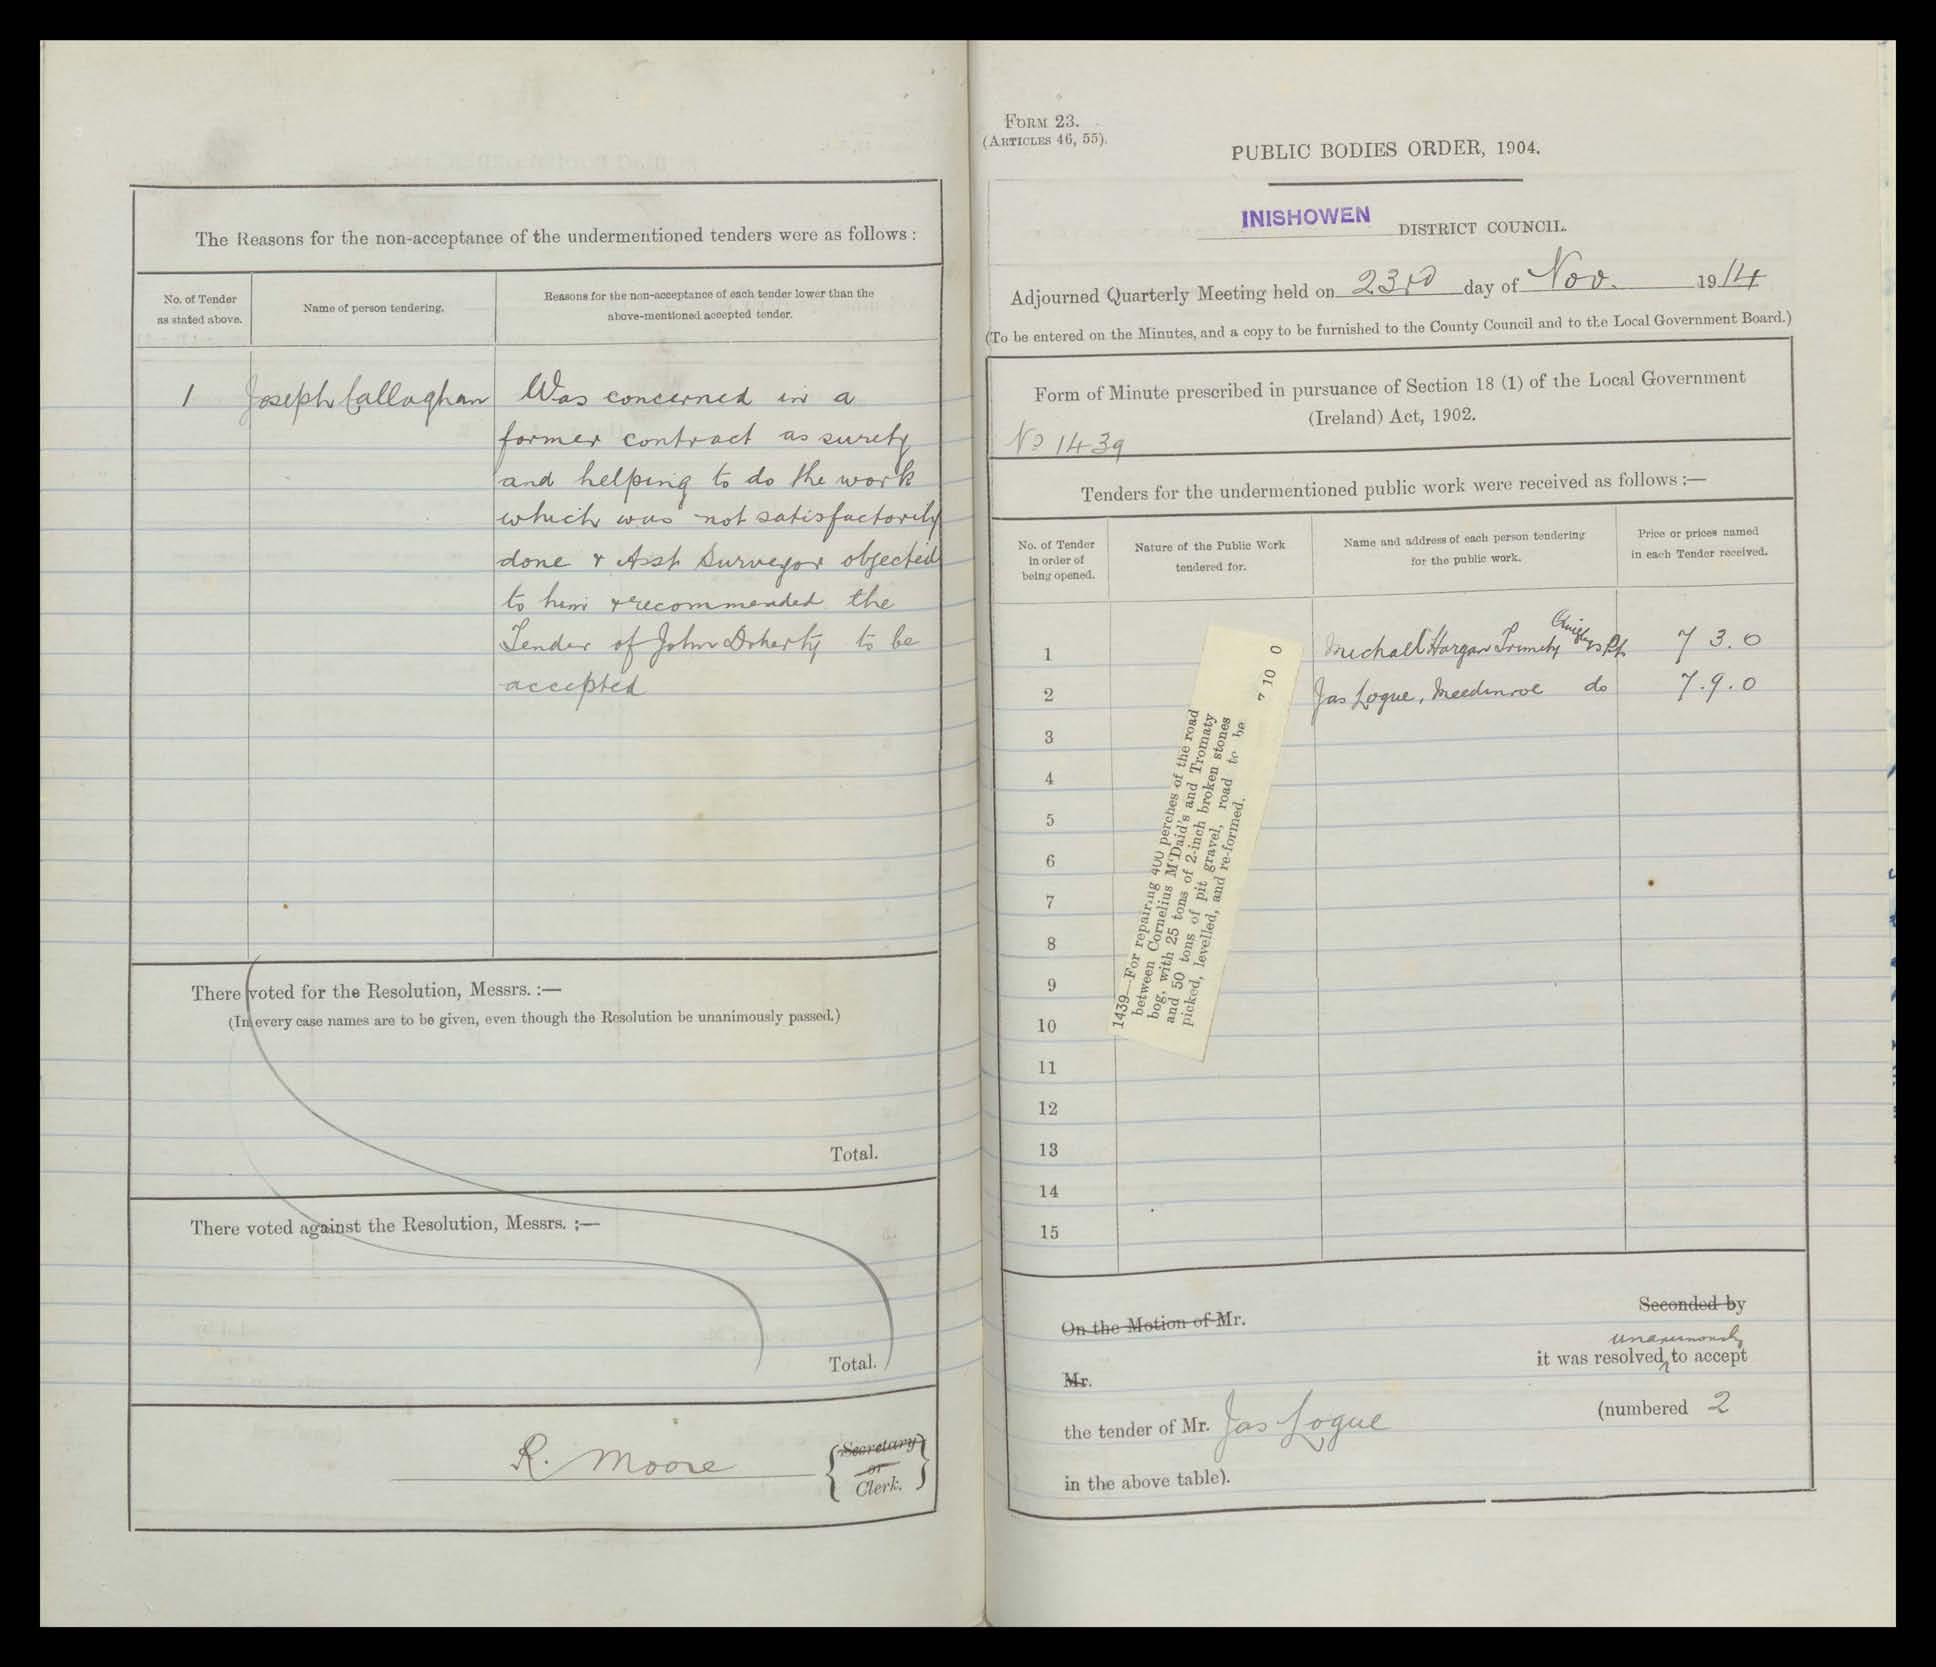 The Reasons for the non-acceptance of the undermentioned tenders were as follows :
No. of Tender
as stated above.
Name of person tendering.
Reasons for the non-acceptance of each tender lower than the
above-mentioned accepted tender.
1 Joseph Callaghan Was concerned in a
former contract as surety
and helping to do the work
which was not satisfactorily
done & Asst Surveyor objected
to him & recommended the
Tender of John Doherty to be
accepted
There voted for the Resolution, Messrs. :—
(In every case names are to be given, even though the Resolution be unanimously passed.)
Total.
There voted against the Resolution, Messrs. :—
Total.
R. Moore
Secretary
or
Clerk.
FORM 23.
(ARTICLES 46, 55).
PUBLIC BODIES ORDER, 1904.
INISHOWEN DISTRICT COUNCIL.
Adjourned Quarterly Meeting held on 23rd day of Nov. 1914
(To be entered on the Minutes, and a copy to be furnished to the County Council and to the Local Government Board.)
Form of Minute prescribed in pursuance of Section 18 (1) of the Local Government
(Ireland) Act, 1902.
No 1439
Tenders for the undermentioned public work were received as follows :—
No. of Tender
in order of
being opened.
Nature of the Public Work
tendered for.
Name and address of each person tendering
for the public work.
Price or prices named
in each Tender received.
1439—For repairing 400 perches of the road
between Cornelius M'Daid's and Tromaty
bog, with 25 tons of 2-inch broken stones
and 50 tons of pit gravel, road to be
picked, levelled, and re-formed.
7 10 0
1 Michael Hargan Quigleys Pt 7 3. 0
2 Jas Logue, do 7. 9. 0
3
4
5
6
7
8
9
10
11
12
13
14
15
On the Motion of Mr. Seconded by
Mr. it was resolved unanimously to accept
the tender of Mr. Jas Logue (numbered 2
in the above table).